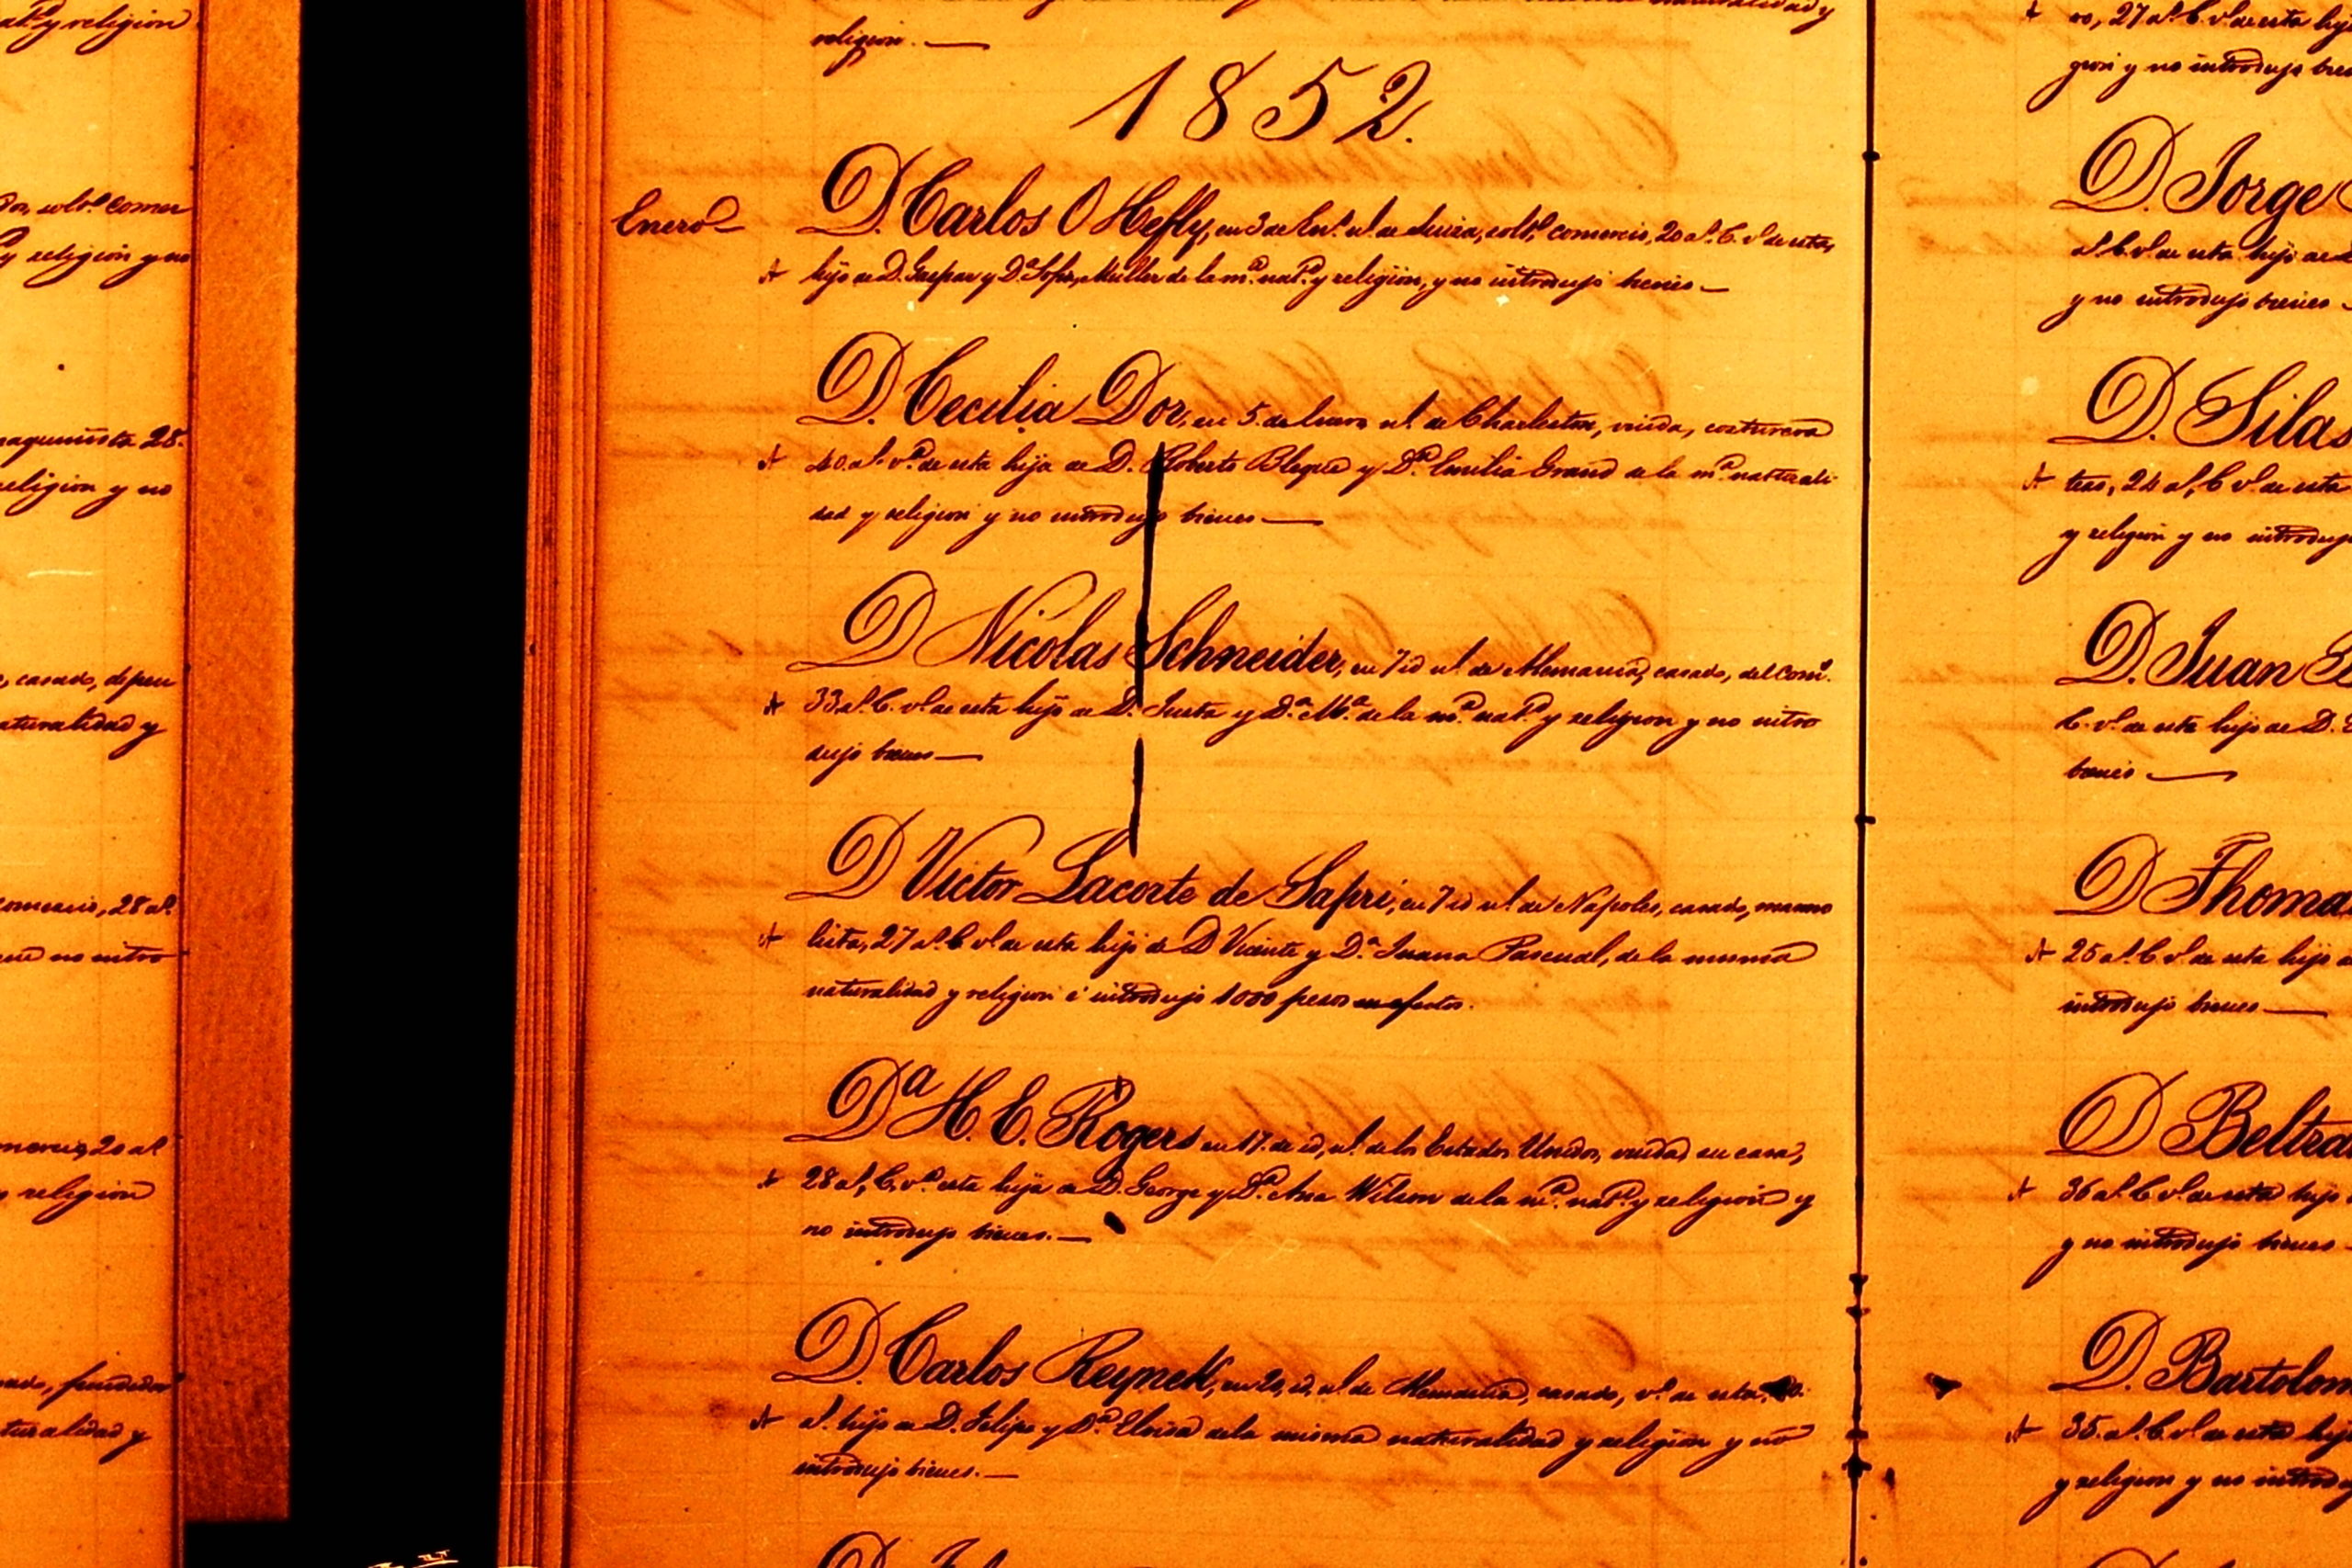 religion.
1852.
Enero
D. Carlos O Hefly, en 3 de En.º n.l de Suiza, solt.º comercio, 20 a.s C. v.º de esta,
A hijo de D. Gaspar y D.ª Sofia Muller de la m.ª nat.d y religion, y no introdujo bienes—
D. Cecilia Dor, en 5 de Enero n.l de Charleston, viuda, costurera
A 40 a.s v.ª de esta hija de D. Roberto y D.ª Emilia de la m.ª naturali
dad y religion y no introdujo bienes—
D Nicolas Schneider, en 7 id n.l de Alemania, casado, del Com.º
A 33 a.s C. v.º de esta hijo de D. y D.ª M.ª de la m.ª nat.d y religion y no intro
dujo bienes—
D Victor Lacorte de Sapri, en 7 id n.l de Napoles, casado, marmo
A lista, 27 a.s C v.º de esta hijo de D Vicente y D.ª Juana Pascual, de la misma
naturalidad y religion é introdujo 1000 pesos en efectos.
Dª H. E. Rogers en 17. de id, n.l de los Estados Unidos, viuda, su casa,
A 28 a.s, C, v.ª esta hija de D. George y D.ª Ana Wilson de la m.ª nat.d y religion y
no introdujo bienes.—
D. Carlos en 20, id, n.l de Alemania, casado, v.º de esta,
A a.s hijo de D. Felipe y D.ª Eloisa de la misma naturalidad y religion y no
introdujo bienes.—
y religion
solt.º comer
y religion y no
maquinista 28.
religion y no
casado, depen
naturalidad y
comercio, 28 a.s
no intro
comercio, 20 a.s
y religion
turalidad y
ro, 27 a.s C. v.º de esta hijo
gion y no introdujo bien
D. Jorge
a.s C. v.º de esta hijo de
y no introdujo bienes—
D. Silas
A tras, 24 a.s, C v.º de esta
y religion y no introdujo
D. Juan
C. v.º de esta hijo de D.
bienes—
D Thoma
A 25 a.s C v.º de esta hijo
introdujo bienes—
D Beltra
A 36 a.s C v.º de esta hijo
y no introdujo bienes—
D. Bartolom
A 35. a.s C. v.º de esta hijo
y religion y no introduj